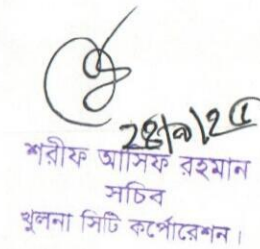 ২৪/৯/২৫
শরীফ আসিফ রহমান
সচিব
খুলনা সিটি কর্পোরেশন।